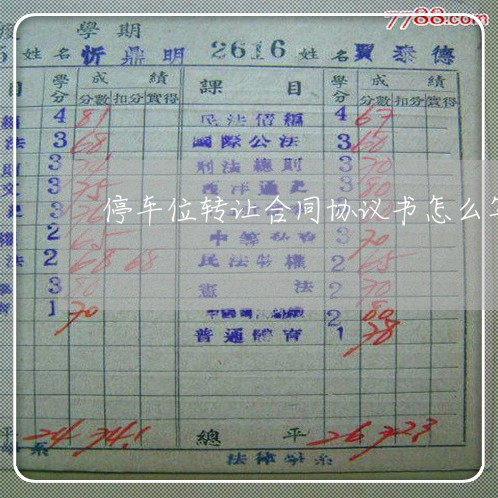 7788.com
學期
姓名 忻鼎明 2616 姓名 賈泰德
目 學分 成績 課目 學分 成績
分數 扣分 實得 分數 扣分 實得
4 81 民法債編 4 67
法 3 68 國際公法 3 60
3 刑法總則 3 70
3 75 西洋通史 3 80
停车位转让合同协议书怎么写
2 65 3 70
法 2 68 68 民法物權 2 65
3 80 憲法 2 70
1 70 2 80
普通體育 1 78
平 24 74.1 總平 26 72.3
系 法律學系